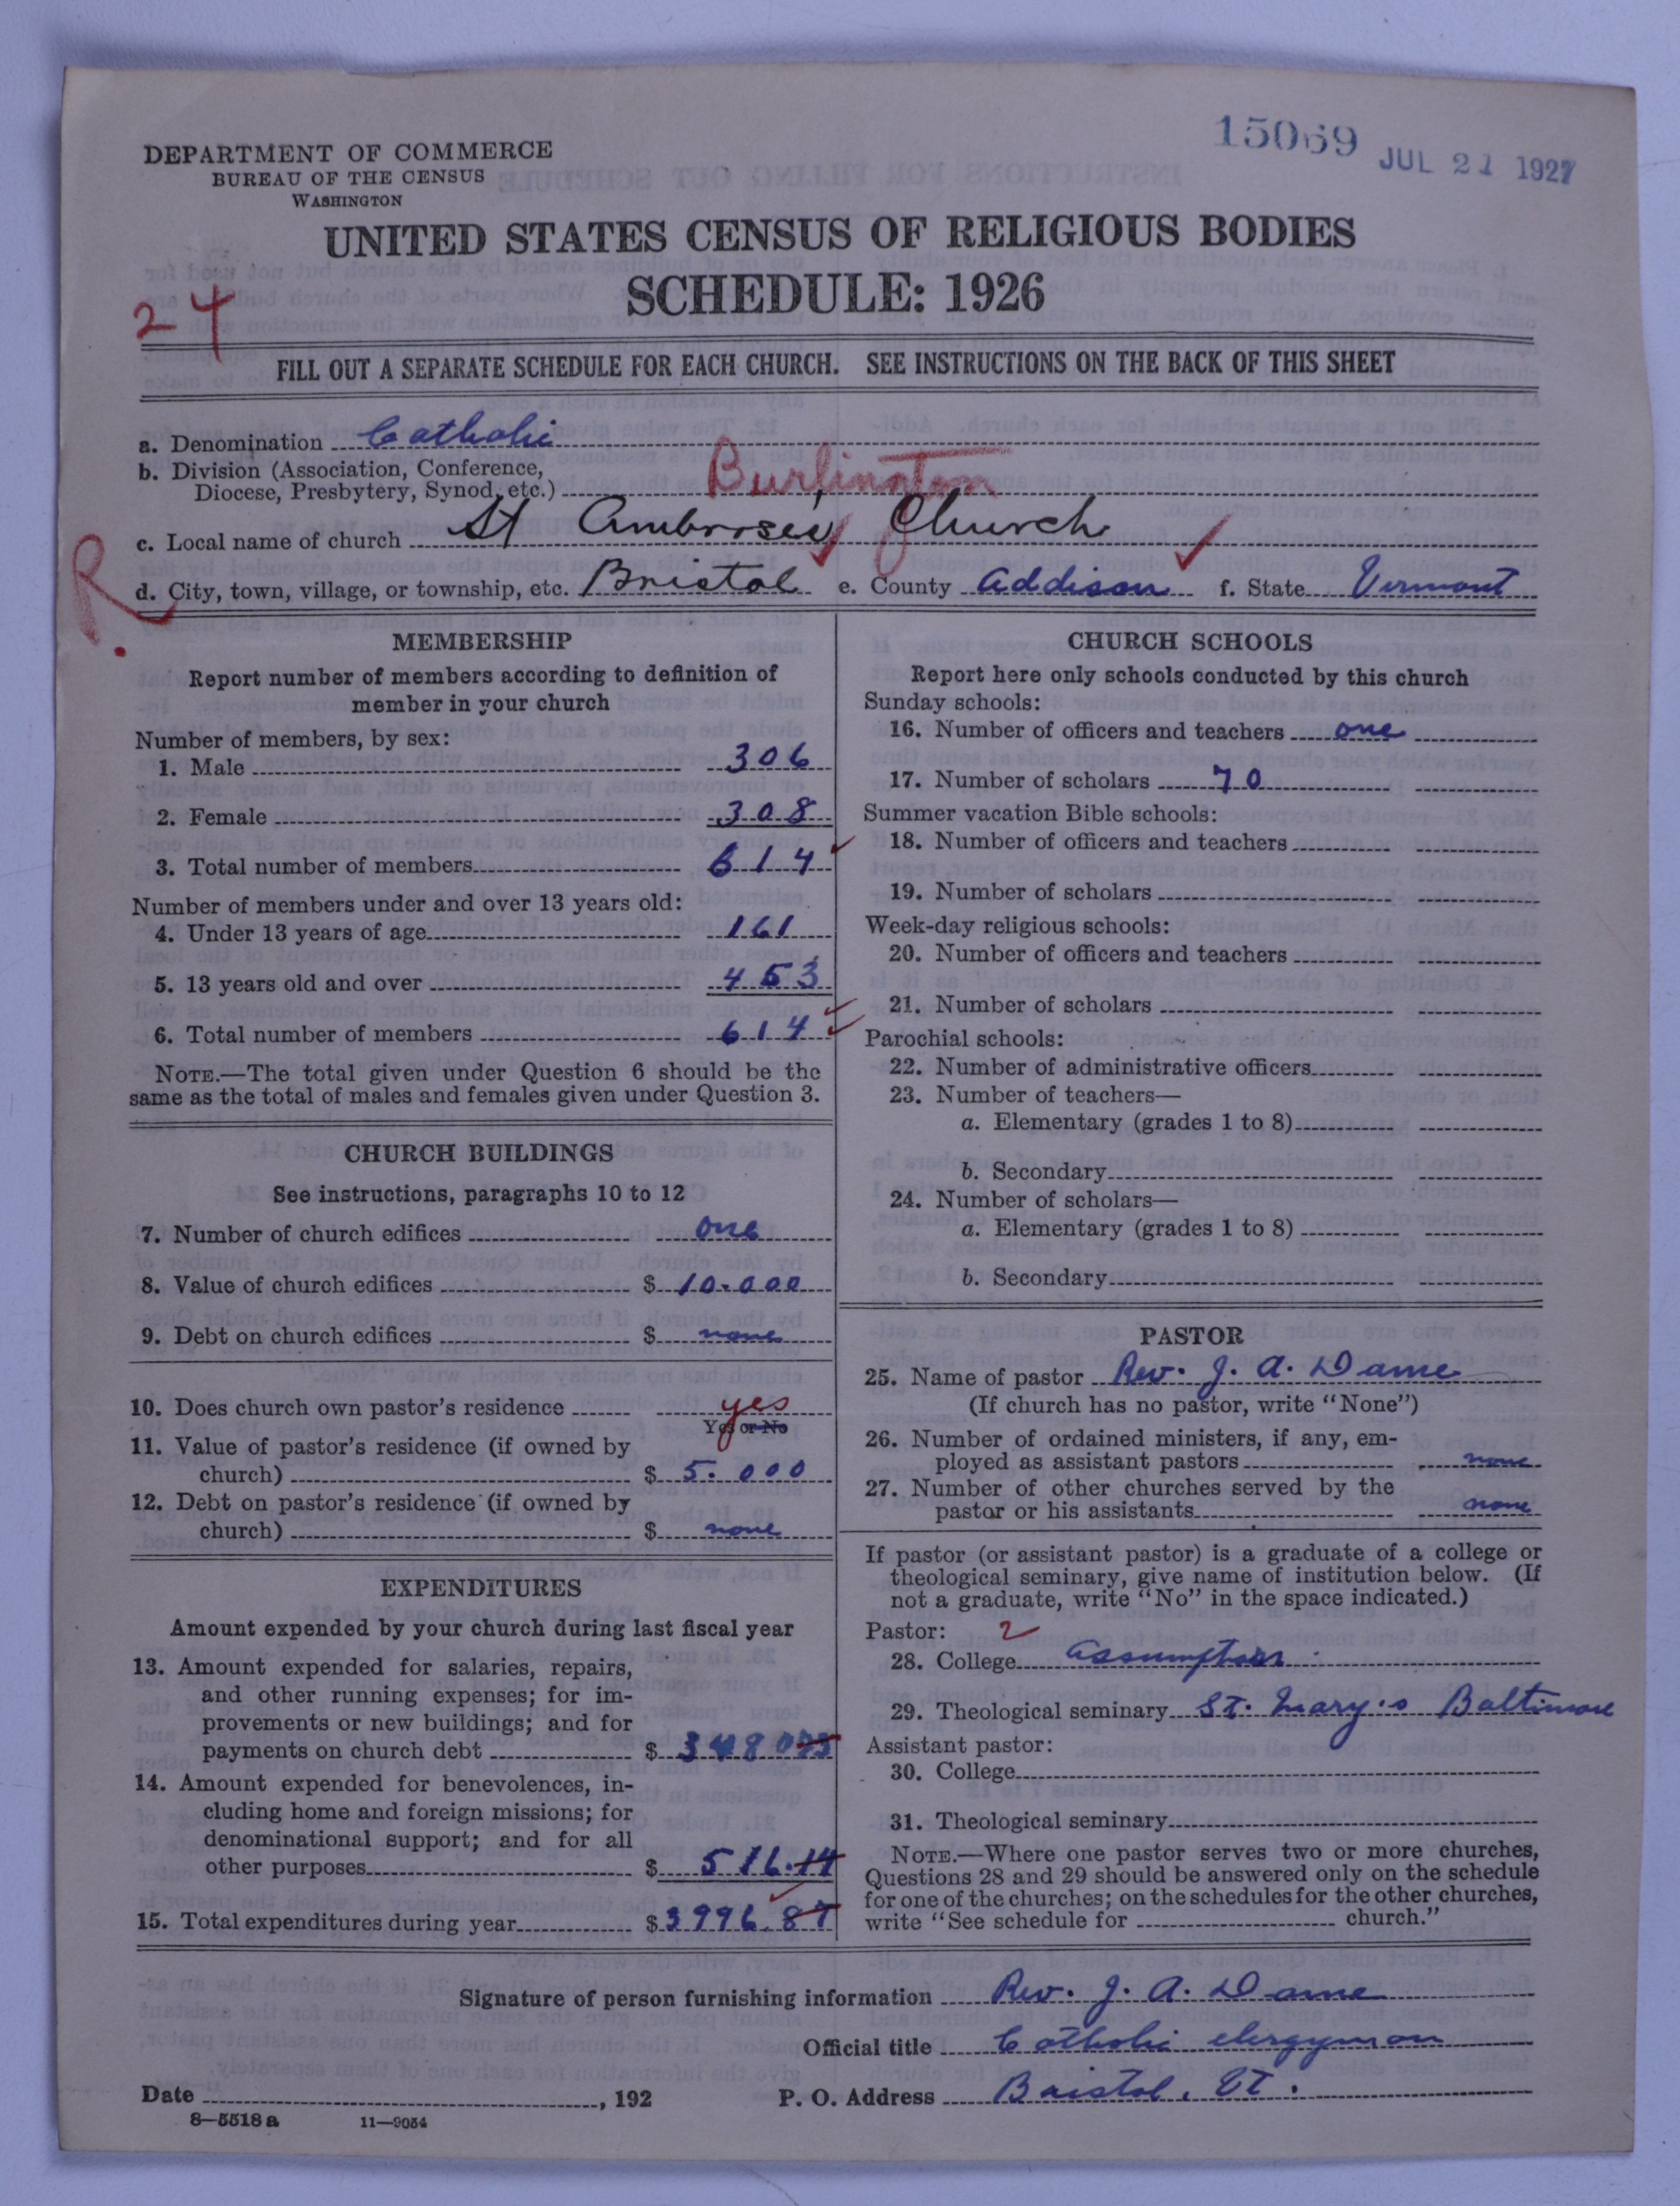 15069 JUL 21 1927
DEPARTMENT OF COMMERCE
BUREAU OF THE CENSUS
WASHINGTON
UNITED STATES CENSUS OF RELIGIOUS BODIES
SCHEDULE: 1926
24
FILL OUT A SEPARATE SCHEDULE FOR EACH CHURCH. SEE INSTRUCTIONS ON THE BACK OF THIS SHEET
a. Denomination Catholic
b. Division (Association, Conference,
Diocese, Presbytery, Synod, etc.) Burlington
c. Local name of church St Ambrose's Church
R.
d. City, town, village, or township, etc. Bristol e. County Addison f. State Vermont
MEMBERSHIP
Report number of members according to definition of
member in your church
Number of members, by sex:
1. Male 306
2. Female 308
3. Total number of members 614
Number of members under and over 13 years old:
4. Under 13 years of age 161
5. 13 years old and over 453
6. Total number of members 614
NOTE.—The total given under Question 6 should be the
same as the total of males and females given under Question 3.
CHURCH BUILDINGS
See instructions, paragraphs 10 to 12
7. Number of church edifices one
8. Value of church edifices $ 10.000
9. Debt on church edifices $ none
10. Does church own pastor's residence yes
Yes or No
11. Value of pastor's residence (if owned by
church) $ 5.000
12. Debt on pastor's residence (if owned by
church) $ none
EXPENDITURES
Amount expended by your church during last fiscal year
13. Amount expended for salaries, repairs,
and other running expenses; for im-
provements or new buildings; and for
payments on church debt $ 3480
14. Amount expended for benevolences, in-
cluding home and foreign missions; for
denominational support; and for all
other purposes $ 516.14
15. Total expenditures during year $ 3996.87
CHURCH SCHOOLS
Report here only schools conducted by this church
Sunday schools:
16. Number of officers and teachers one
17. Number of scholars 70
Summer vacation Bible schools:
18. Number of officers and teachers
19. Number of scholars
Week-day religious schools:
20. Number of officers and teachers
21. Number of scholars
Parochial schools:
22. Number of administrative officers
23. Number of teachers—
a. Elementary (grades 1 to 8)
b. Secondary
24. Number of scholars—
a. Elementary (grades 1 to 8)
b. Secondary
PASTOR
25. Name of pastor Rev. J. A. Dame
(If church has no pastor, write "None")
26. Number of ordained ministers, if any, em-
ployed as assistant pastors none
27. Number of other churches served by the
pastor or his assistants none
If pastor (or assistant pastor) is a graduate of a college or
theological seminary, give name of institution below. (If
not a graduate, write "No" in the space indicated.)
Pastor: 2
28. College Assumption
29. Theological seminary St. Mary's Baltimore
Assistant pastor:
30. College
31. Theological seminary
NOTE.—Where one pastor serves two or more churches,
Questions 28 and 29 should be answered only on the schedule
for one of the churches; on the schedules for the other churches,
write "See schedule for church."
Signature of person furnishing information Rev. J. A. Dame
Official title Catholic clergyman
Date , 192 P. O. Address Bristol, Vt.
8—5518 a 11—9054